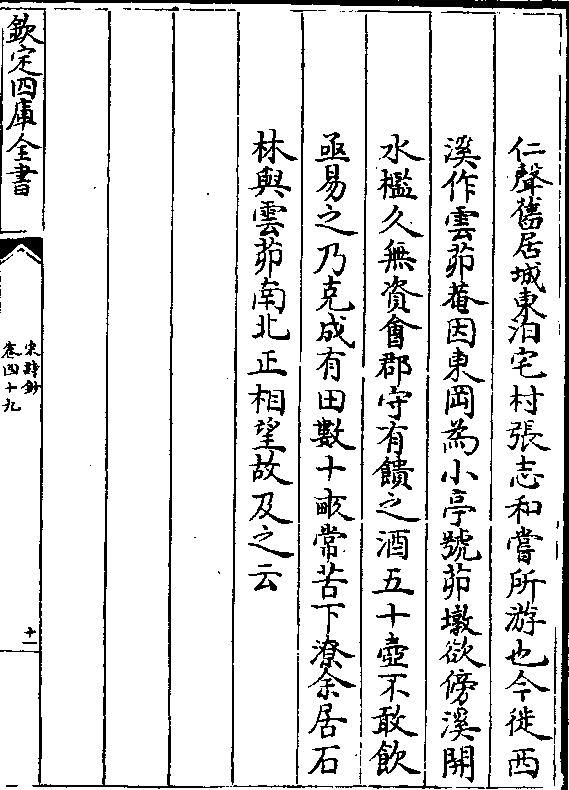 仁聲舊居城東泊宅村張志和嘗所游也今徙西
溪作雲茆菴因東岡為小亭號茆墩欲傍溪開
水檻久無資會郡守有饋之酒五十壺不敢飲
亟易之乃克成有田數十畝常苦下潦余居石
林與雲茆南北正相望故及之云
欽定四庫全書
宋詩鈔
卷四十九
十一